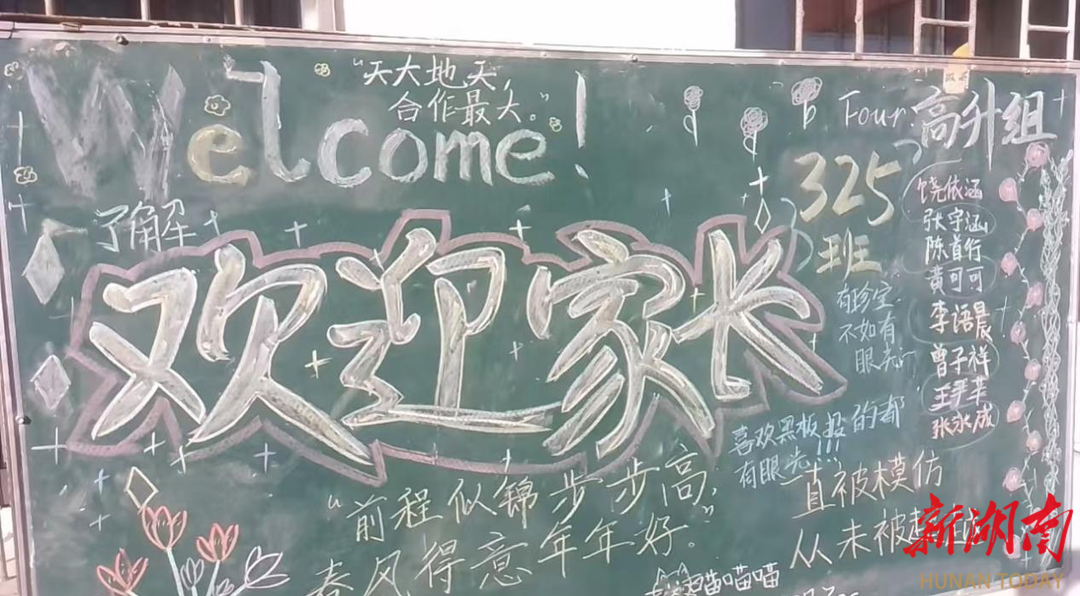 Welcome!
"天大地大,
合作最大。"
了解
欢迎家长
Four 高升组
325
班
饶依涵
张宇涵
陈首行
黄可可
李语晨
曾子祥
张永成
有珍宝
不如有
眼光
喜欢黑板报的都
有眼光!!!
一直被模仿
从未被
"前程似锦步步高,
春风得意年年好。"
喵喵喵
新湖南
HUNAN TODAY